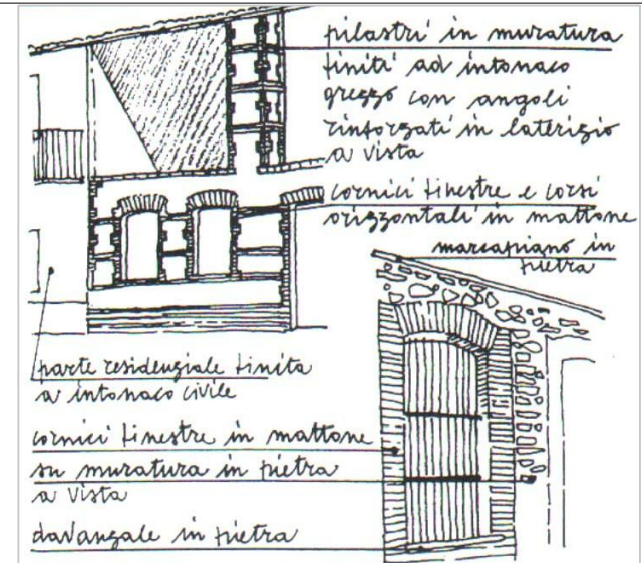 pilastri in muratura
finiti ad intonaco
grezzo con angoli
rinforzati in laterizio
a vista
cornici finestre e corsi
orizzontali in mattone
marcapiano in
pietra
parte residenziale finita
a intonaco civile
cornici finestre in mattone
su muratura in pietra
a vista
davanzale in pietra